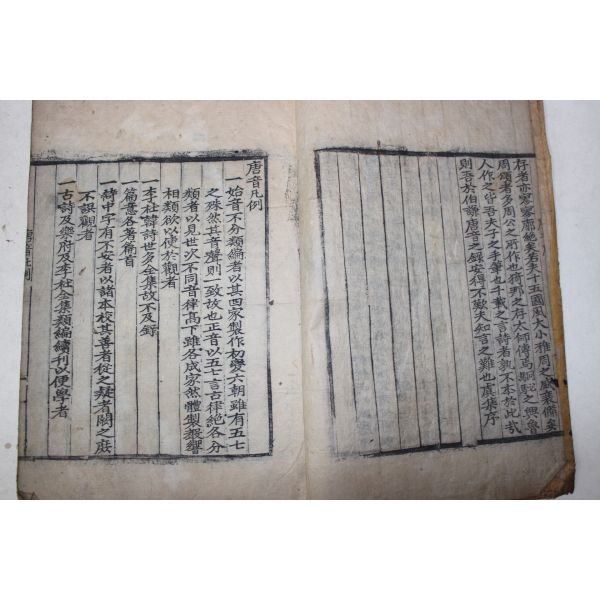 存者亦寥寥廓絶矣若夫十五國風大小雅周之盛衰備矣
周頌者多周公之所作也猗那之存太師傳焉駉駜之興魯
人作之皆吾夫子之手筆也千載之言詩者孰不本於此哉
則吾於伯謙唐音之録安得不歎夫知言之難也虞集序
唐音凡例
一始音不分類編者以其四家製作初變六朝雖有五七
之殊然其音聲則一致故也正音以五七言古律絶各分
類者以見世次不同音律高下雖各成家然體製聲響
相類欲以便於觀者
一李杜韓詩世多全集故不及録
一篇意各著篇首
一詩中字有不安者以諸本校其善者從之疑者闕之庶
不誤觀者
一古詩及樂府及李杜全集類編續刊以便學者